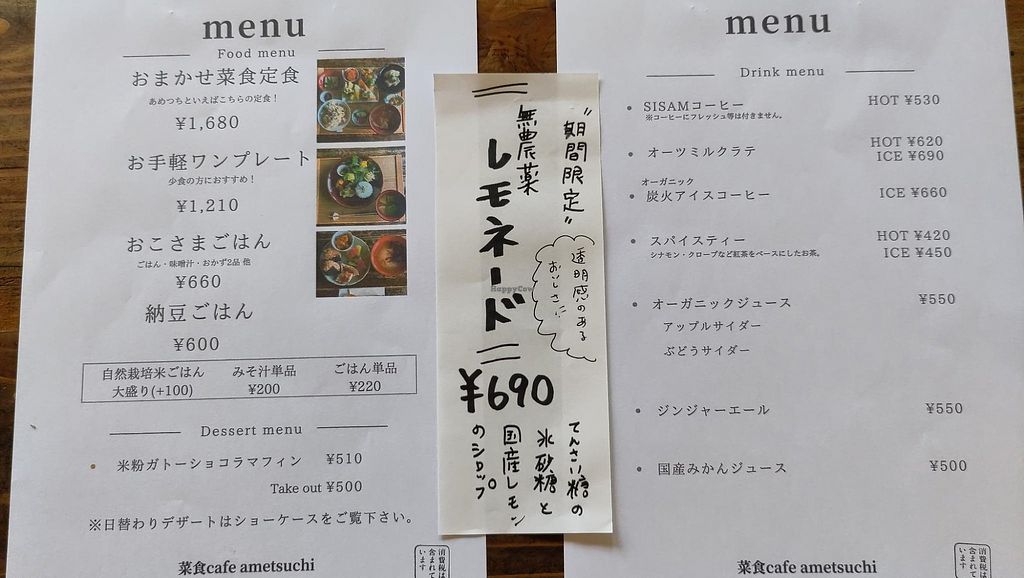 menu
Food menu
おまかせ菜食定食
あめつちといえばこちらの定食！
¥1,680
お手軽ワンプレート
少食の方におすすめ！
¥1,210
おこさまごはん
ごはん・味噌汁・おかず2品 他
¥660
納豆ごはん
¥600
自然栽培米ごはん みそ汁単品 ごはん単品
大盛り(+100) ¥200 ¥220
Dessert menu
米粉ガトーショコラマフィン ¥510
Take out ¥500
※日替わりデザートはショーケースをご覧下さい。
菜食cafe ametsuchi
消費税は
含まれて
います
"期間限定"
無農薬
レモネード
透明感のある
おいしさに
¥690
てんさい糖の
氷砂糖と
国産レモン
のシロップ。
HappyCow
menu
Drink menu
SISAMコーヒー HOT ¥530
※コーヒーにフレッシュ等は付きません。
オーツミルクラテ HOT ¥620
ICE ¥690
オーガニック
炭火アイスコーヒー ICE ¥660
スパイスティー HOT ¥420
シナモン・クローブなど紅茶をベースにしたお茶。 ICE ¥450
オーガニックジュース ¥550
アップルサイダー
ぶどうサイダー
ジンジャーエール ¥550
国産みかんジュース ¥500
菜食cafe ametsuchi
消費税は
含まれて
います